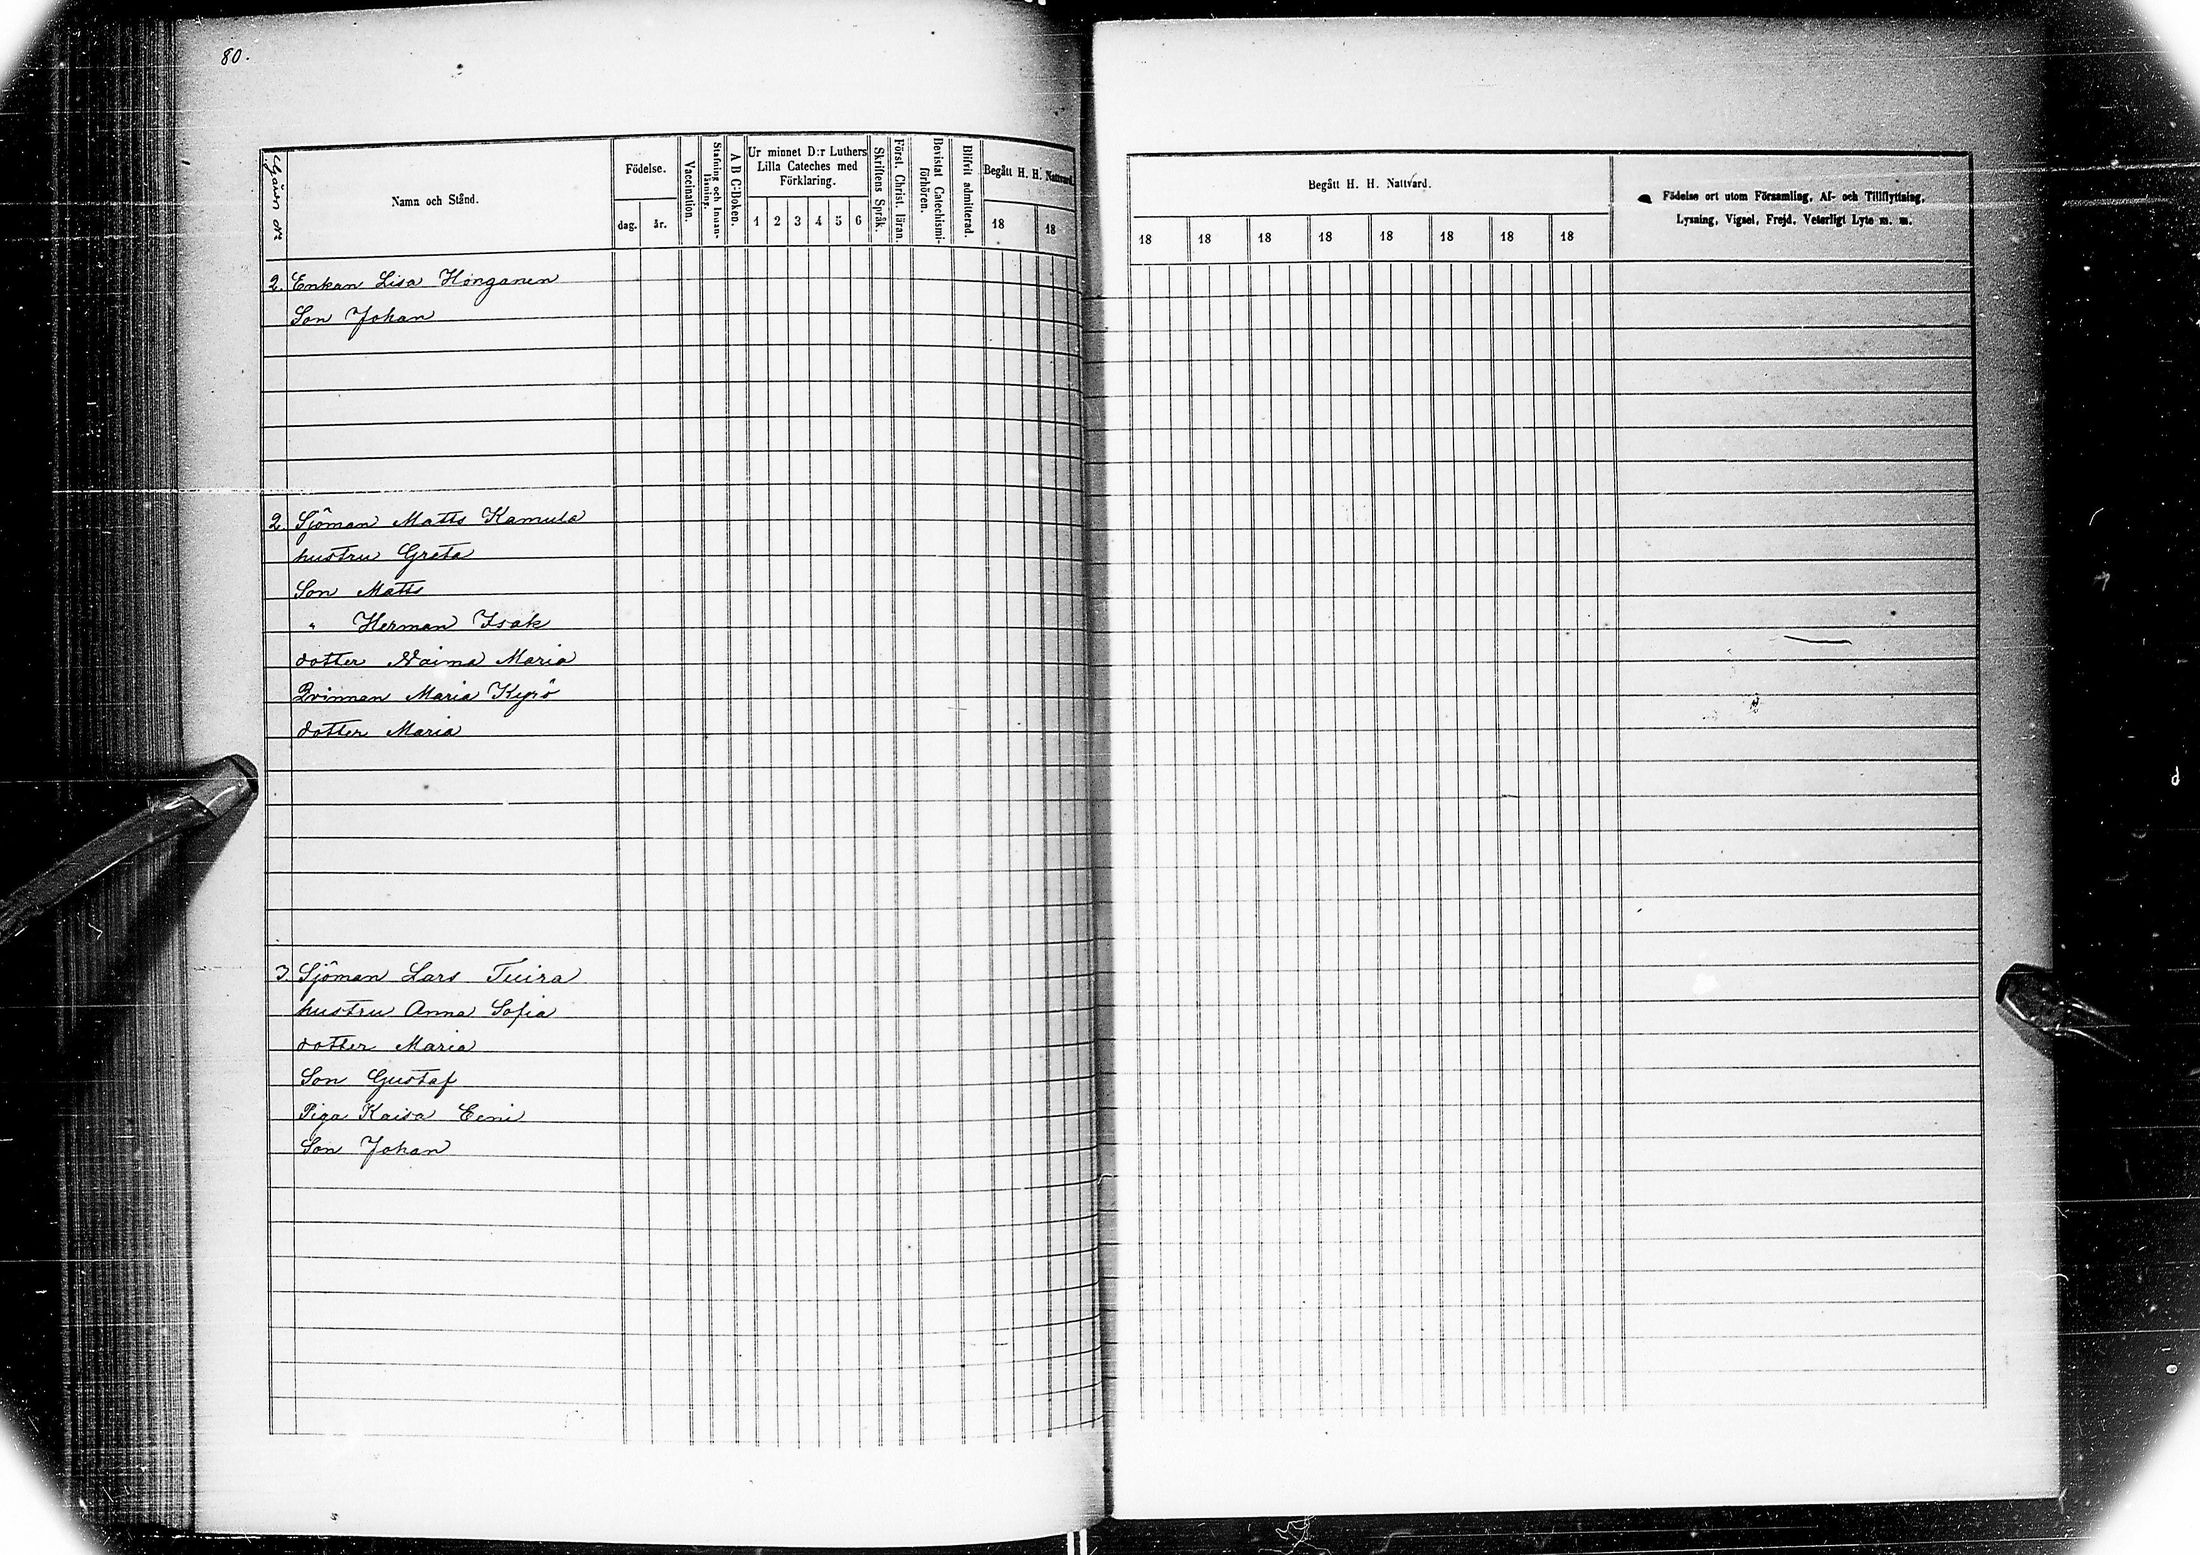 80.
Gården №
Namn och Stånd.
Födelse.
dag. år.
Vaccination.
Stafning och Innan-
läsning.
A B C-Boken.
Ur minnet D:r Luthers
Lilla Cateches med
Förklaring.
1 2 3 4 5 6
Skriftens Språk.
Först. Christ. läran.
Bevistat Catechismi-
förhören.
Blifvit admitterad.
Begått H. H. Nattvard.
18 18
Begått H. H. Nattvard.
18 18 18 18 18 18 18 18
Födelse ort utom Församling, Af- och Tillflyttning,
Lysning, Vigsel, Frejd, Veterligt Lyte m. m.
2. Enkan Lisa Honganen
Son Johan
2. Sjöman Matts Kamula
hustru Greta
Son Matts
" Herman Isak
dotter Naima Maria
Qvinnan Maria Kyrö
dotter Maria
3. Sjöman Lars Tuira
hustru Anna Sofia
dotter Maria
Son Gustaf
Piga Kaisa Eeni
Son Johan